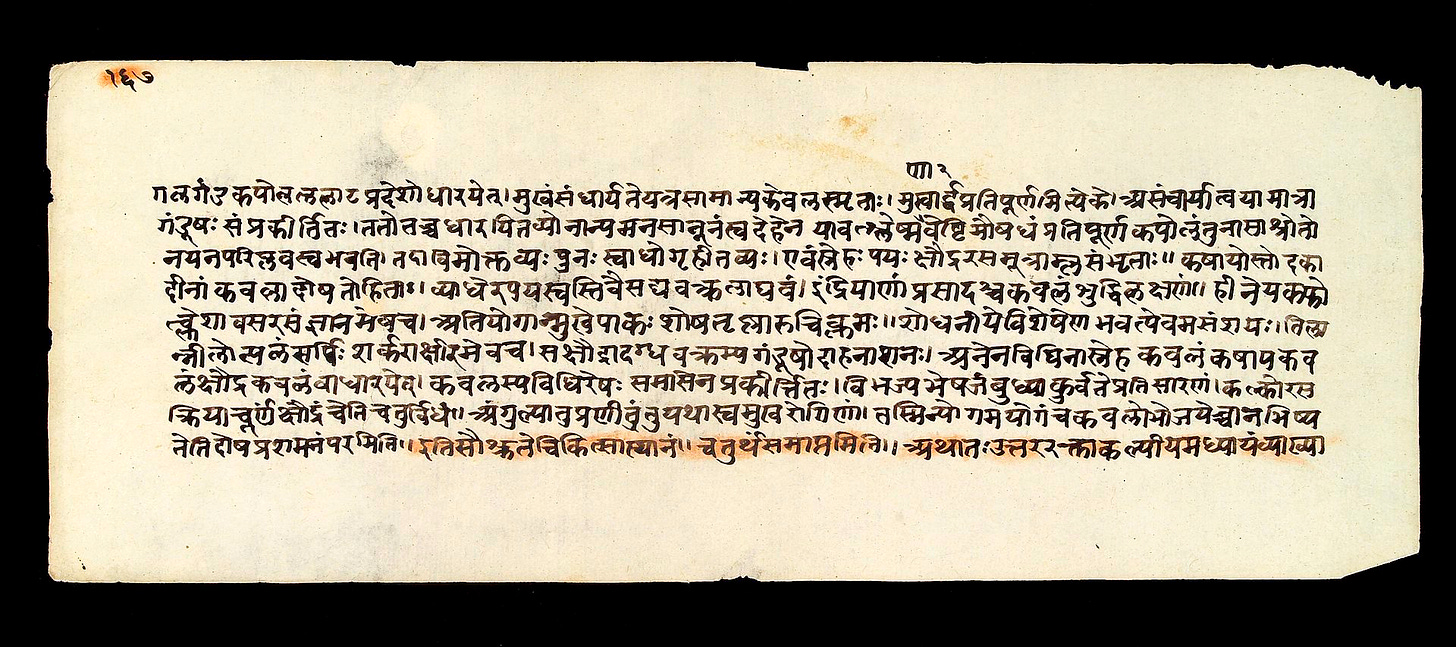 १६७
णा २
गलगंड कपोलललाट प्रदेशो धारयेत्। मुखंसंधार्यतेयत्रसामान्यकेवलस्मृताः। मुखार्द्धप्रतिपूर्णमित्येके। असंचार्यात्वयामात्रा
गंडूषः संप्रकीर्तितः। ततो धारयितव्यो नान्यमनसानूनंत्वदेहेन यावत् प्रतिपूर्ण कपोलंतुनासाश्रोतो
नयनपरिप्लवस्वभवति। तदाविमोक्तव्यः पुनः स्वाधोगृहीतव्यः। एवंस्नेहः पयः क्षौद्ररसमूत्राम्लसंभृताः॥ कषायोस्तोदका
दीनां कवलादोषतोहिताः। व्याधेरपचयस्त्वस्तिवैसद्यवक्रलाघवं। इंद्रियाणां प्रसादश्चकवलेशुद्धिलक्षणं॥ हीनेयकफो
त्क्लेशावसरसंज्ञानमेवच। अतियोगान्मुखेपाकः शोषतृष्णारुचिक्लमः॥ शोधनीयेविशेषेण भवत्येवमसंशयः। तिला
न्नीलोत्पलंसर्पिः शर्कराक्षीरमेवच। सक्षौद्रादग्धवक्रस्य गंडूषोदाहनाशनः। अनेनविधिनास्नेहकवलं कषायकव
लंक्षौद्रकवलंवाधारयेत्। कवलस्यविधिरेषः समासेन प्रकीर्तितः। विभज्यभेषजंबुध्या कुर्वतेप्रतिसारणं। कल्कोरस
क्रियाचूर्णक्षौद्रंचेतिचतुर्विधं। अंगुल्यातुप्रणीतुंतुयथास्वमुखरोगिणां। तस्मिन्योगमयोगंचकवलोभोजयेच्चानभिष्य
नेतिदोषप्रशमनंपरमिति॥ इतिसौश्रुतेचिकित्सास्थानं॥ चतुर्थंसमाप्तमिति॥ अथातःउत्तर कल्पीयमध्यायंव्याख्या